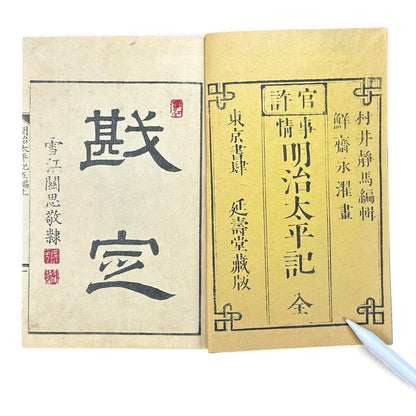 村井静馬編輯
鮮齋永濯畫
官許
事情
明治太平記 全
東京書肆 延壽堂藏版
戡定
雪江關思敬隸
明治太平記